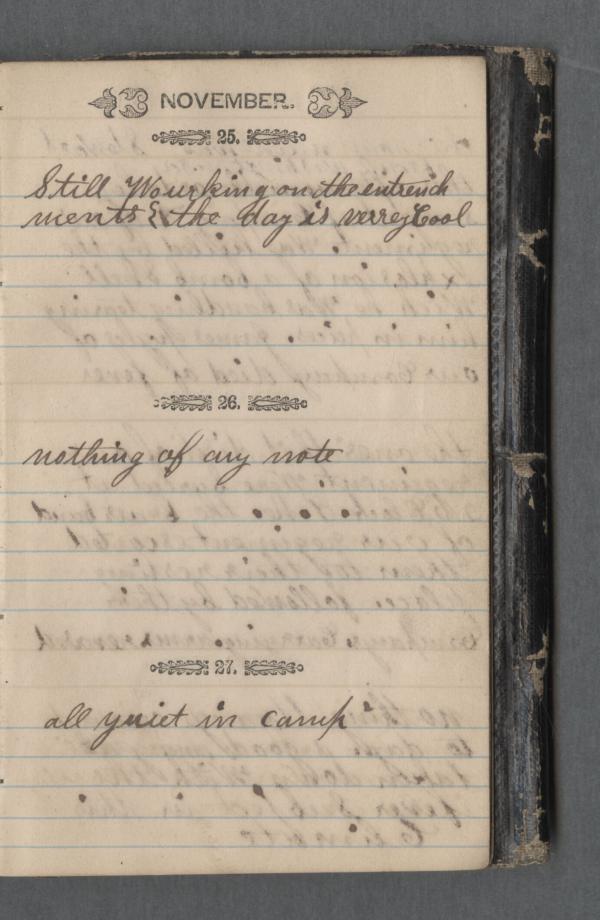 NOVEMBER.
25.
Still Wourking on the entrench
ments & the day is verrey Cool
26.
nothing of any note
27.
all quiet in camp